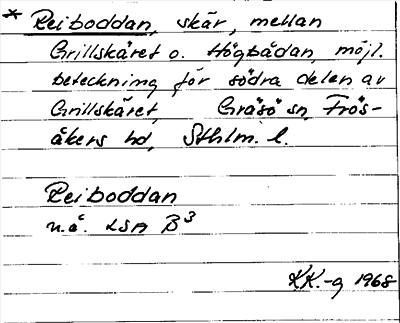 * Reiboddan, skär, mellan
Grillskäret o. Högbådan, möjl.
beteckning för södra delen av
Grillskäret, Gräsö sn, Frös-
åkers hd, Sthlm. l.
Reiboddan
n.å. LSA B³
KK.-g 1968